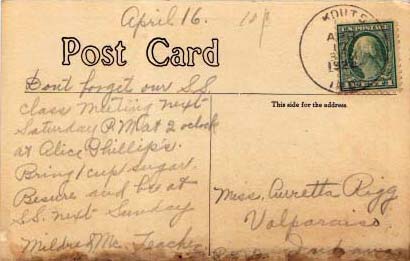 April 16.
KOUTS
Post Card
Dont forget our S.S.
class meeting next
Saturday P.M. at 2 oclock
at Alice Phillip's.
Bring 1 cup sugar.
Besure and be at
S.S. next Sunday
Mildred Mc. Teacher
This side for the address.
Miss. Auretta Rigg
Valparaiso,
Indiana